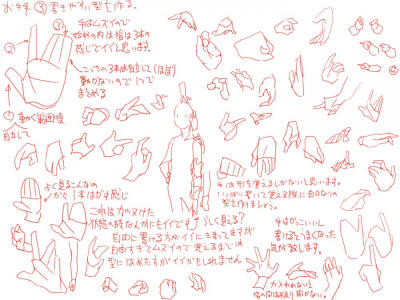 お手手 ③ 書きやすい型を作る。
③
手はムズイので
始めの内は指は3本の
感じでイイと思います。
②
こっちの3本は自立して(ほぼ)
動かないので1つで
まとめる
①
動く範囲も
自立して
よく見るこんなの
1本はがす感じ
これは力のヌけた
状態の時なんかにもイイです
よく見る?
自由に書ける方がイイにきまってますが
自由すぎてムズイので覚えるまでは
型にはめた方がイイかもしれません
手は形を覚えるしかないと思います。
いっぱい書いて覚える際に自分なりの
型を作りましょう。
手はかっこいい
書けるとうまくなった
気が致します。
力入れないと
指の間は